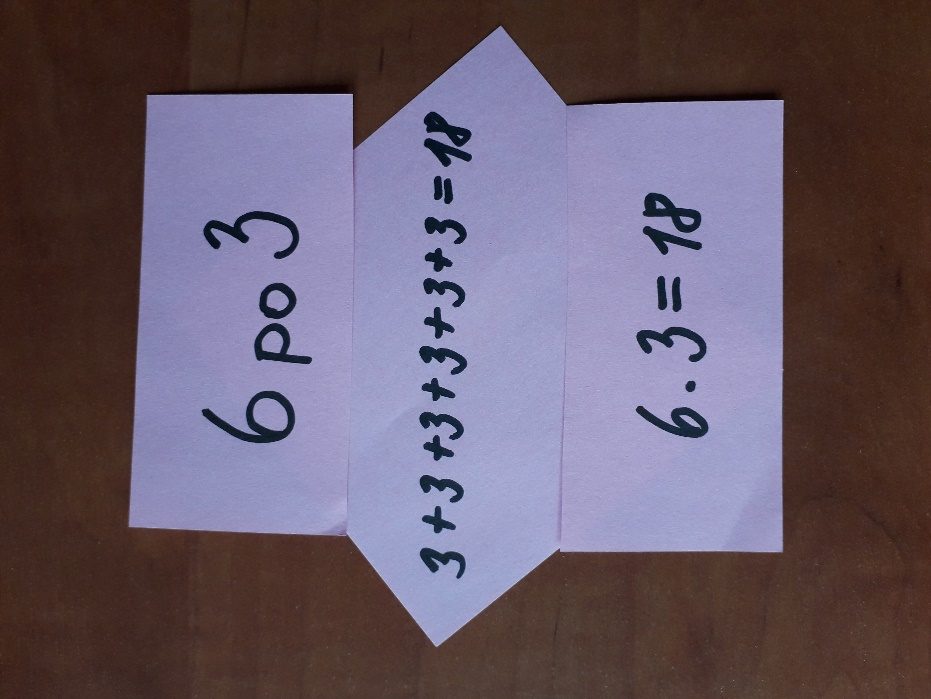 6 po 3
3+3+3+3+3+3=18
6·3=18